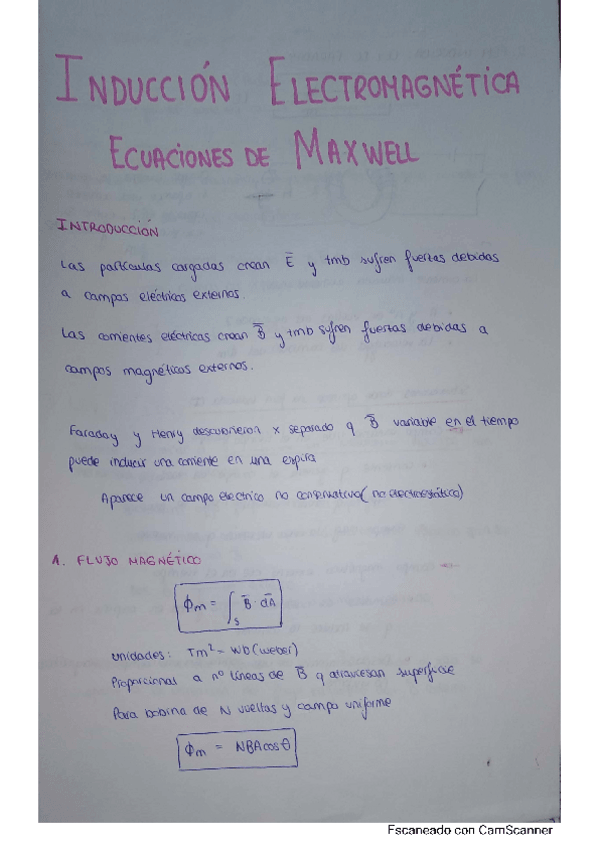 INDUCCIÓN ELECTROMAGNÉTICA
ECUACIONES DE MAXWELL
INTRODUCCIÓN
Las partículas cargadas crean E̅ y tmb sufren fuertas debidas
a campos eléctricos externos.
Las corrientes eléctricas crean B̅ y tmb sufren fuertas debidas a
campos magnéticos externos.
Faraday y Henry descubrieron x separado q B̅ variable en el tiempo
puede inducir una corriente en una espira
Aparece un campo electrico no conservativo (no electrostático)
1. FLUJO MAGNÉTICO
ϕm = ∫s B̅ · dA̅
unidades: Tm² = Wb (weber)
Proporcional a nº líneas de B̅ q atraviesan superficie
Para bobina de N vueltas y campo uniforme
ϕm = NBA cos θ
Escaneado con CamScanner